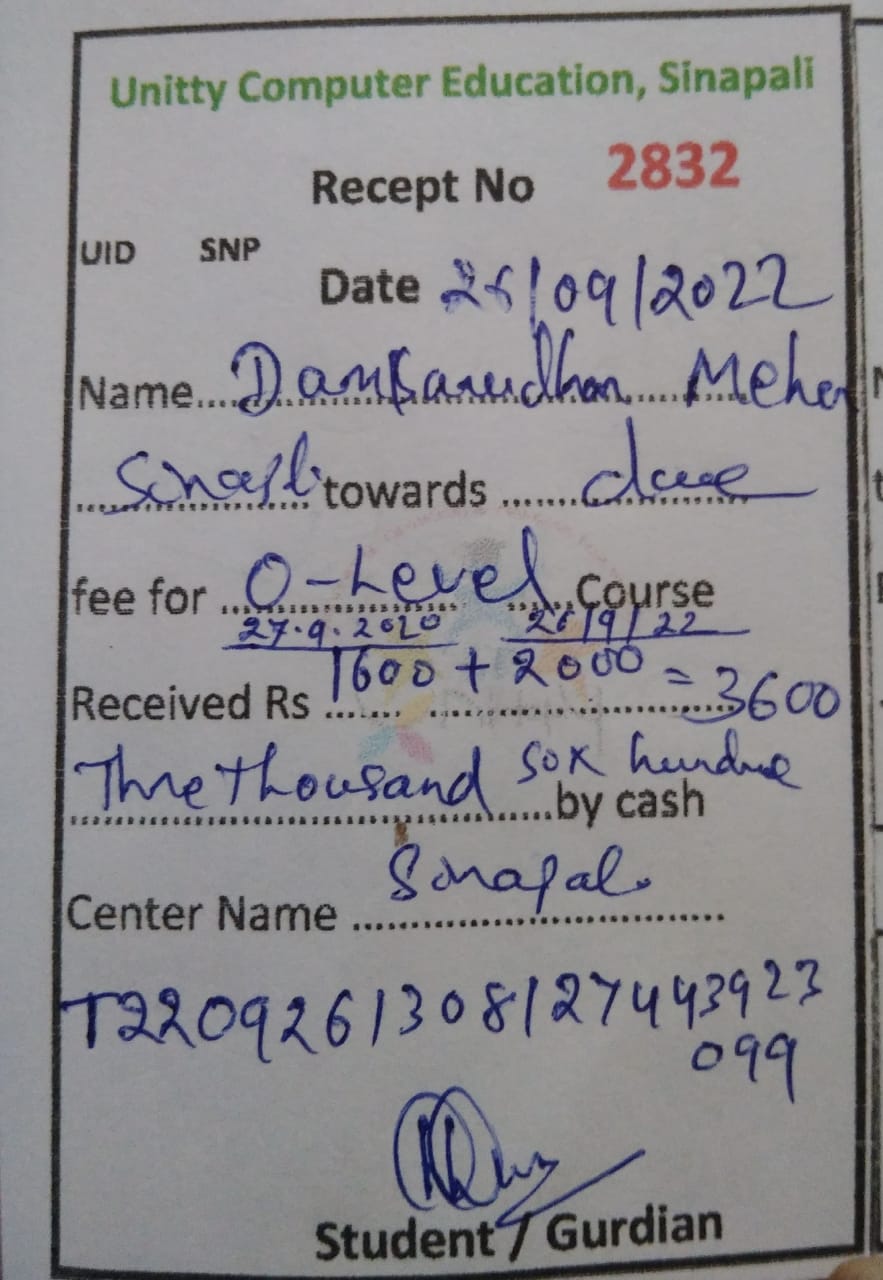 Unitty Computer Education, Sinapali
Recept No 2832
UID SNP
Date 26/09/2022
Name.... Dambarudhar Meher
Sinapali towards ....... due
fee for ... O-Level ...... Course
27.9.2020 26/9/22
1600 + 2000 = 3600
Received Rs .......
Three thousand six hundred
by cash
Center Name Sinapali
T220926130812744 3923
099
Student / Gurdian